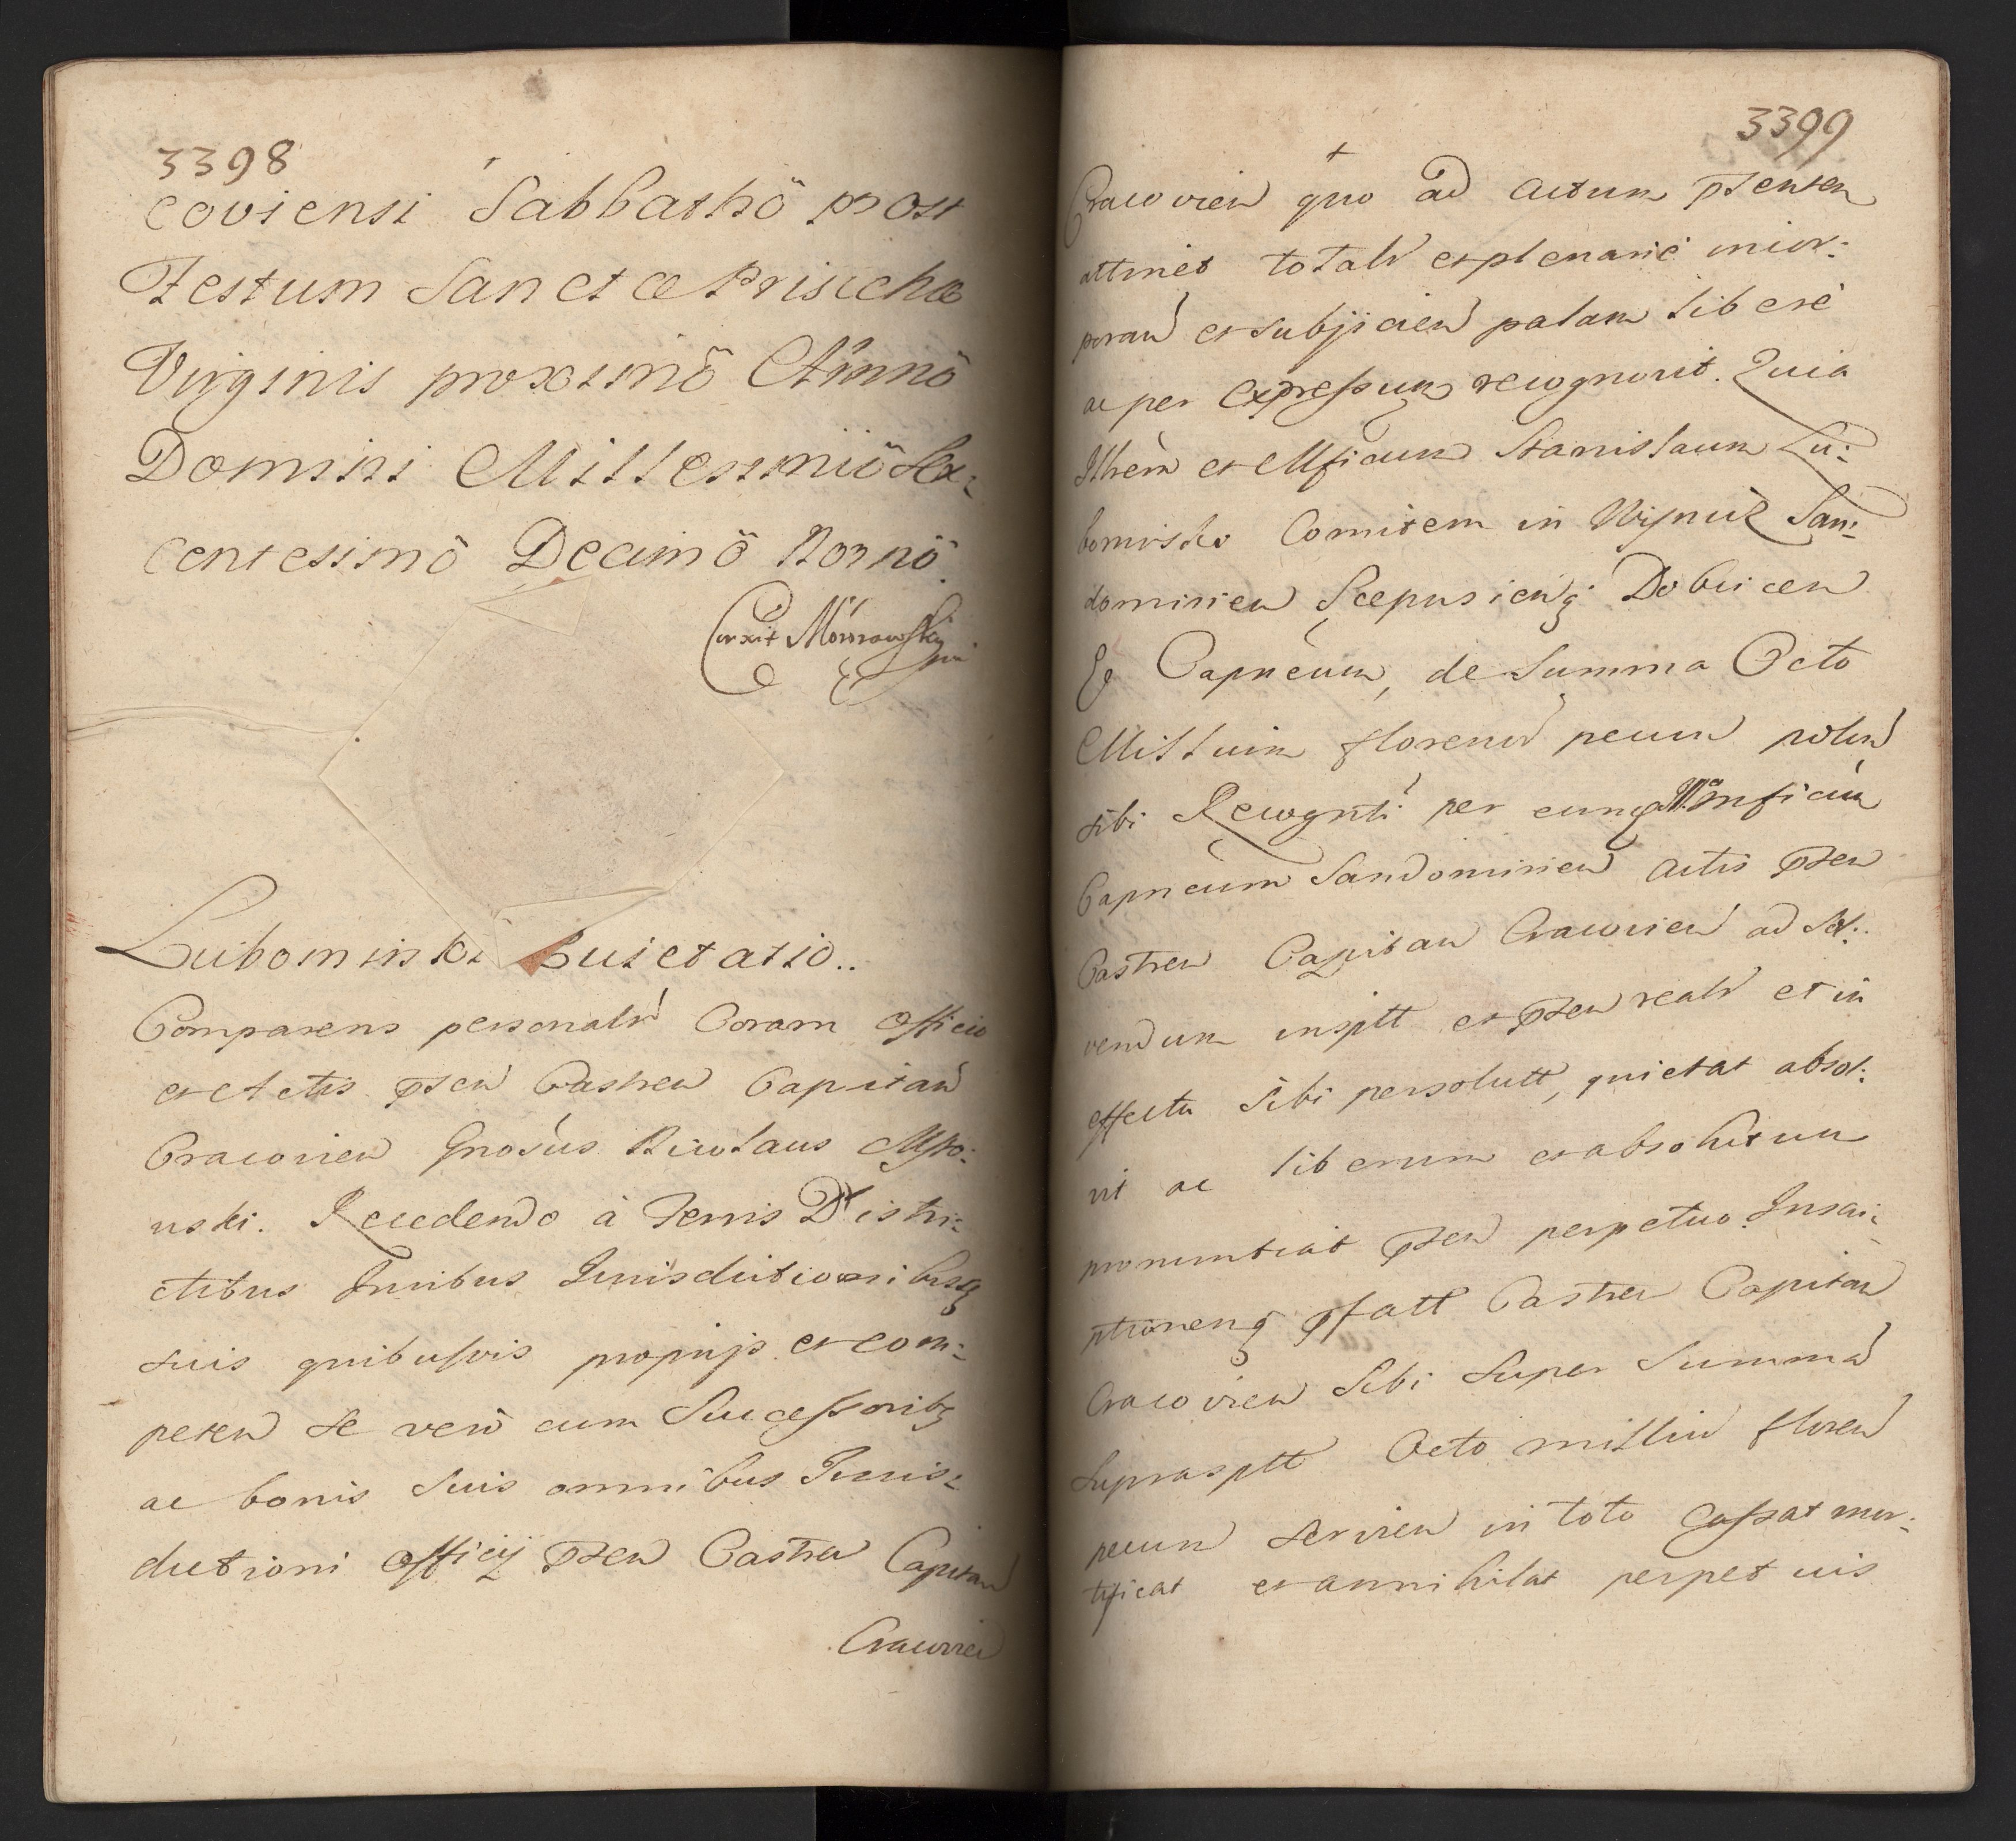 3398
coviensi Sabbathô post
Festum Sanctæ Priscchæ
Virginis proximô Annô
Domini Millessimô Sex:
centesimô Decimô Nonnô.
Corxit Morawski
mp
Lubomirski Quietatio..
Comparens personalr Coram Officio
et Actis pnten Castren Capitan
Cracovien Gnosus Nicolaus Mysko:
wski. Recedendo à Terris Distri:
ctibus Juribus Jurisdictionibusq
suis quibusvis proprijs et com:
peten se verò cum Successoribq
ac bonis suis omnibus Juris:
dictioni Officij pnten Castren Capitan
Cracovien
3399
Cracovien quo ad actum pntentem
attinet totalr et plenariè incor:
poran et subjicien palam liberè
ac per expressum recognovit. Quia
Illrem et Mficum Stanislaum Lu:
bomirski Comitem in Wisnicz San:
domirien Scepusienq Dobcicen
& Capneum, de Summa Octo
Millium florenor pecun polon
sibi Recognti per eundem Mnficum
Capneum Sandomirien actis pnten
Castren Capitan Cracovien ad sol:
vendum insptt et pnten realr et in
effectu sibi persolutt, quietat absol:
vit ac liberum et absolutum
pronuntiat pnten perpetuo. Inscri:
ptionenq pfatt Castren Capitan
Cracovien sibi super Summa
suprasptt Octo milliu floren
pecun servien in toto cassat mor:
tificat et annihilat perpetuis